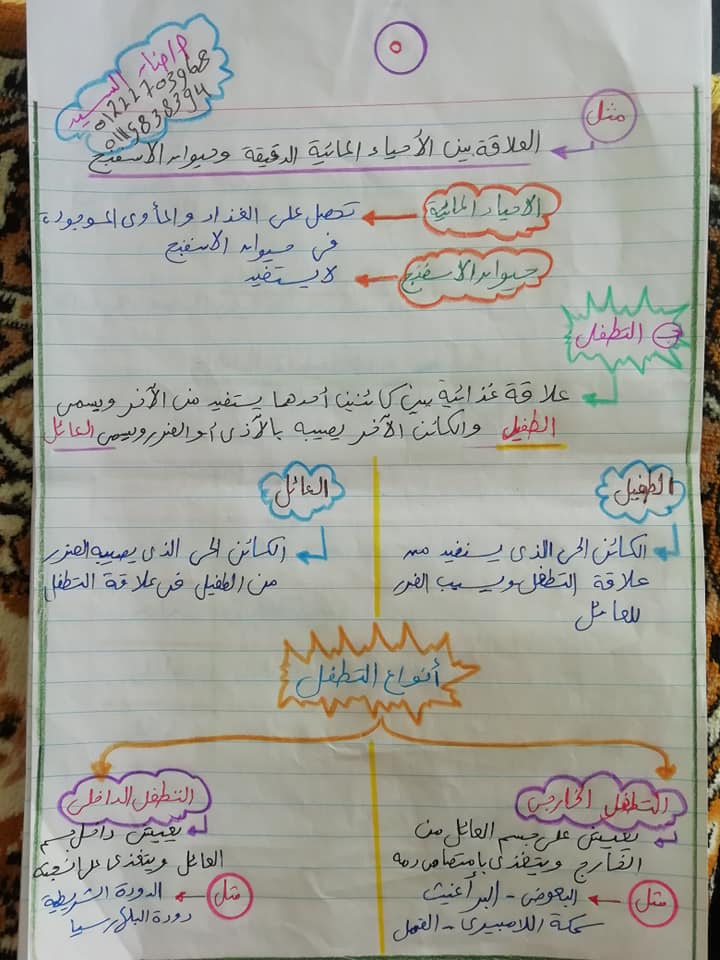 م/منار السيد
01222703968
01115838394
مثل
العلاقة بين الأحياء المائية الدقيقة وحيوان الاسفنج
الاحياء المائية
تحصل على الغذاء والمأوى الموجودة
فى حيوان الاسفنج
حيوان الاسفنج
لا يستفيد
التطفل
علاقة غذائية بين كائنين أحدهما يستفيد من الآخر ويسمى
الطفيل والكائن الآخر يصيبه بالأذى أو الضرر ويسمى العائل
الطفيل
الكائن الحى الذى يستفيد من
علاقة التطفل ويسبب الضرر
للعائل
العائل
الكائن الحى الذى يصيبه الضرر
من الطفيل فى علاقة التطفل
أنواع التطفل
التطفل الخارجى
يعيش على جسم العائل من
الخارج ويتغذى بامتصاص دمه
مثل
البعوض - البراغيث
سمكة اللامبيرى - القمل
التطفل الداخلى
يعيش داخل جسم
العائل ويتغذى على انسجته
مثل
الدودة الشريطية
دودة البلهارسيا